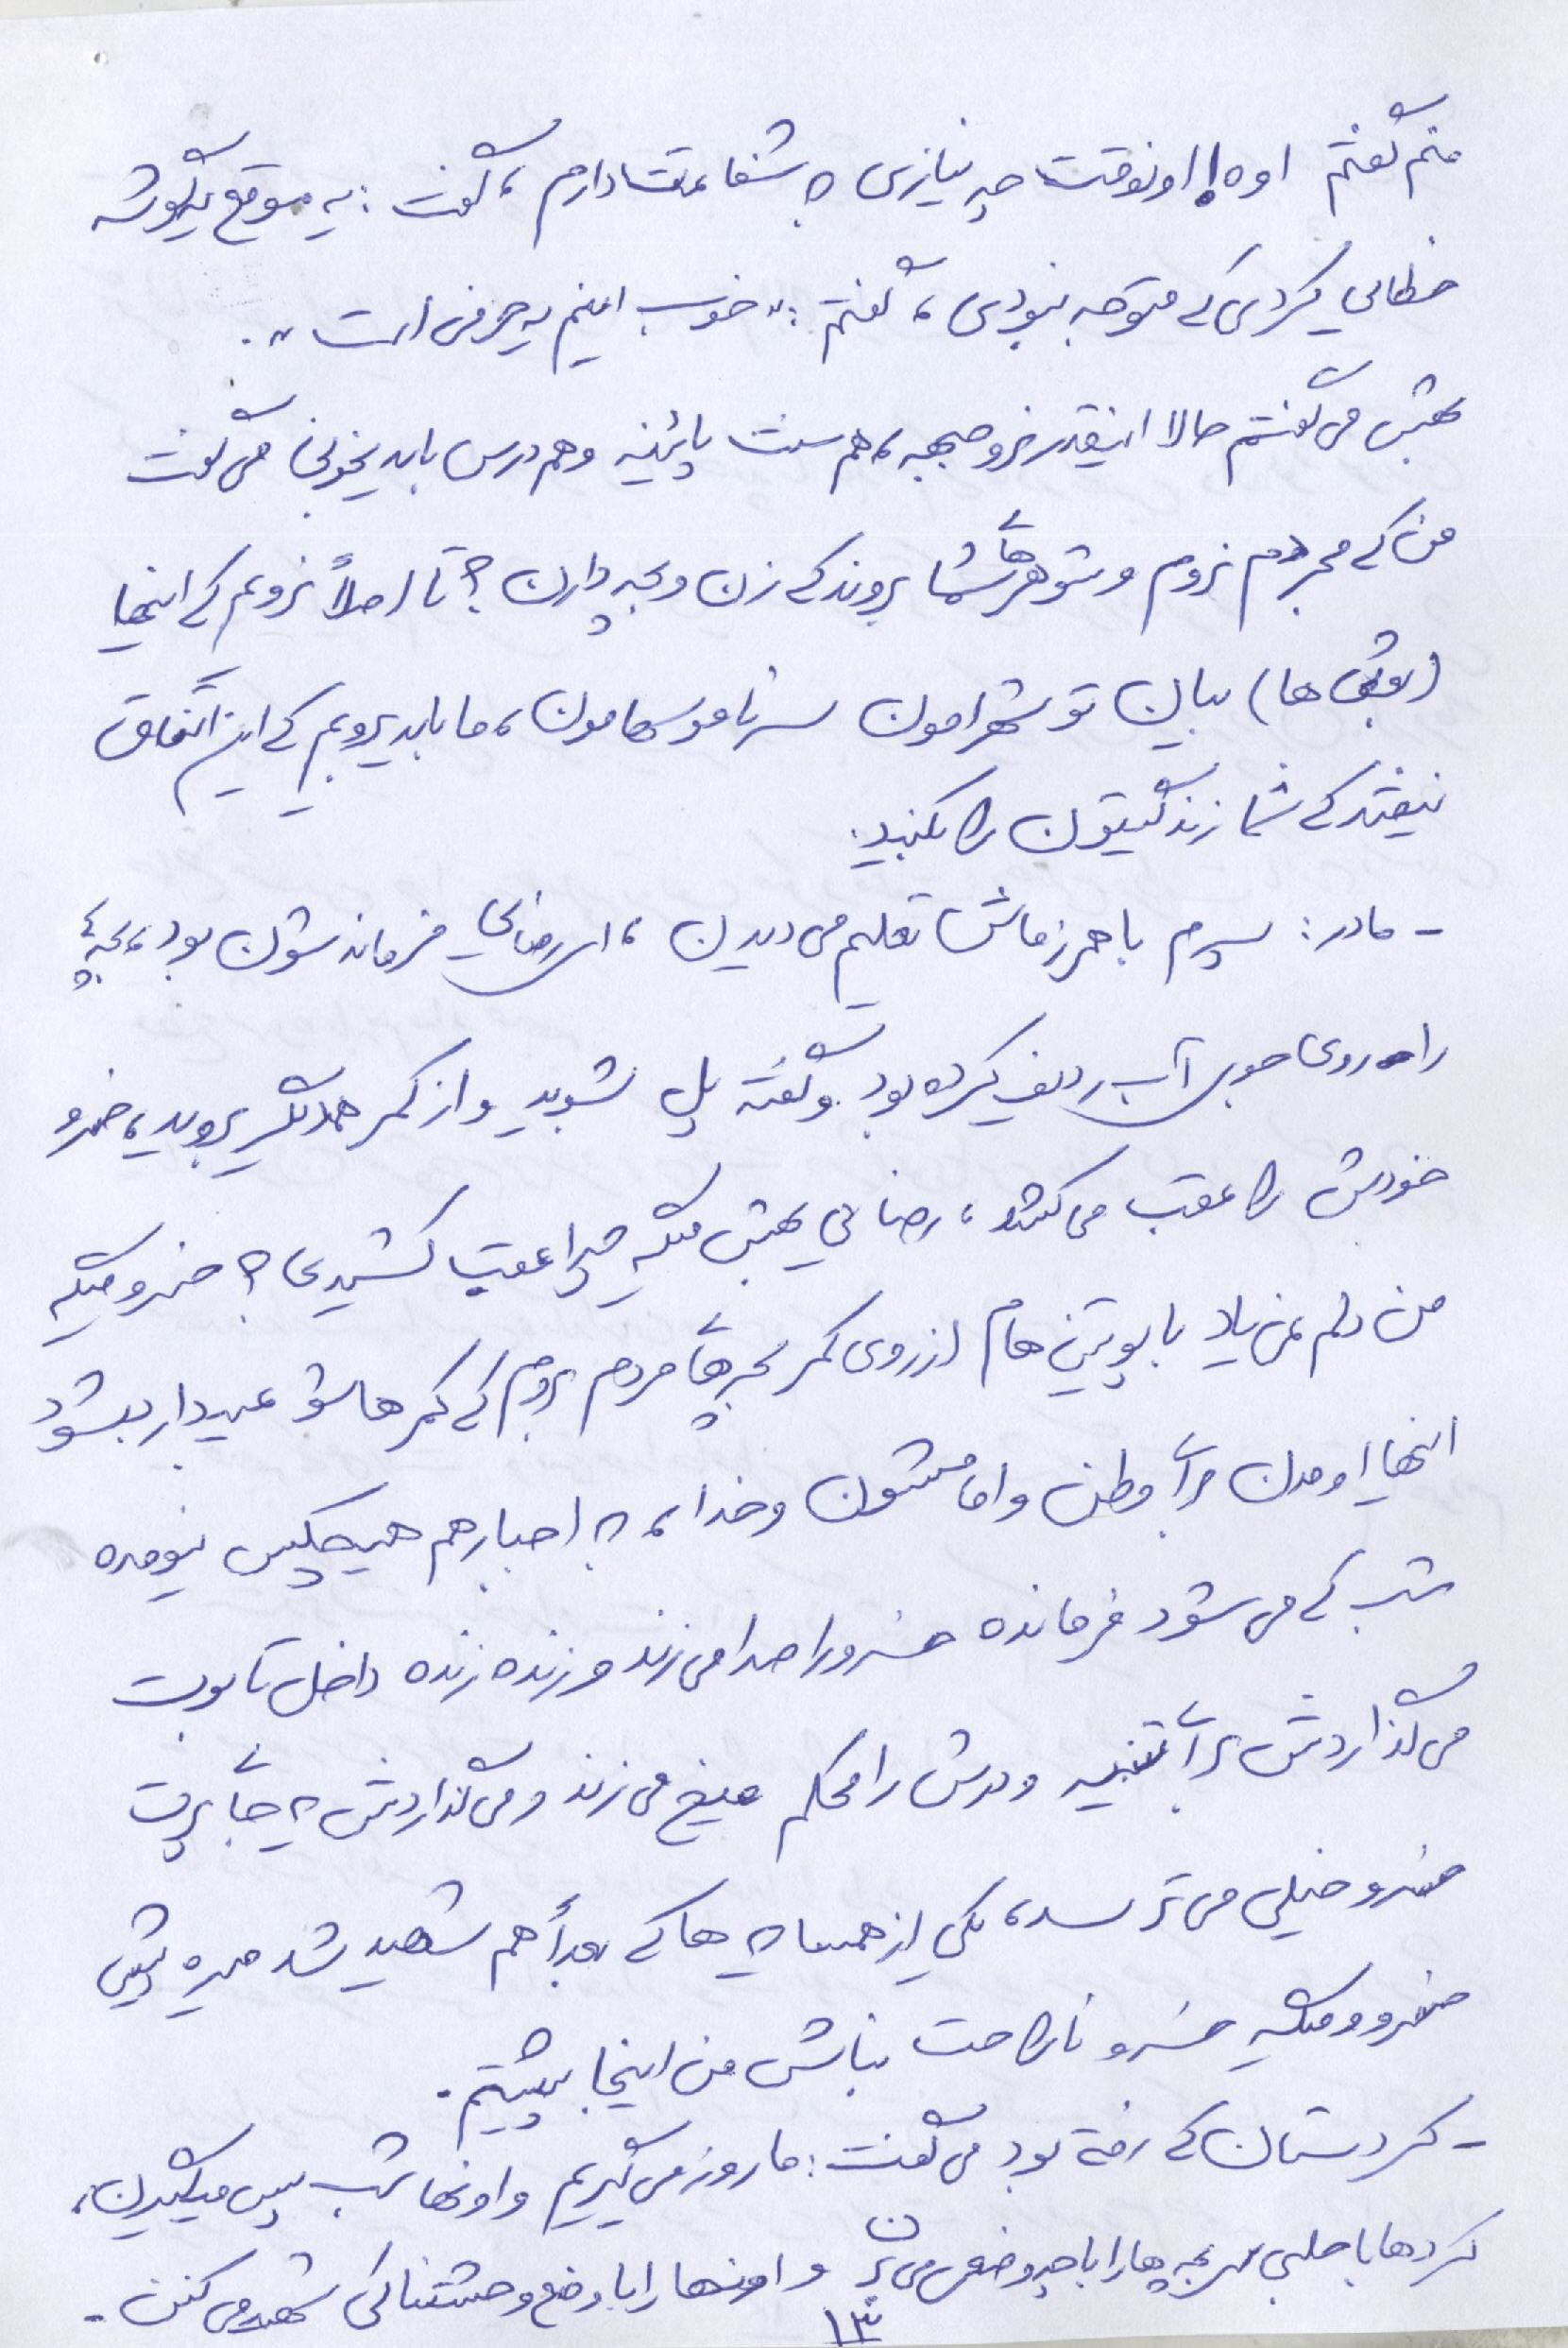 منم گفتم اوه!! اونوقت چه نیازی به شفاعتت دارم، گفت: یه موقع یه گوشه
خطایی کردی که متوجه نبودی، گفتم: «خوب اینم یه حرفی است».
بهش می گفتم حالا اینقدر نرو جبهه، هم سنت پائینه و هم درس باید بخونی می گفت
من که مجردم نروم و شوهرهای شما بروند که زن و بچه دارن؟ تا اصلاً نرویم که اینها
(بعثی ها) بیان تو شهرامون سر ناموسهامون، ما باید برویم که این اتفاق
نیفتد که شما زندگیتون را بکنید.
- مادر: پسرم با همرزماش تعلیم می دیدن، رضایی فرمانده شون بود، بچه ها
را روی جوی آب ردیف کرده بود و گفته پل بشوید و از کمر همدیگر بروید، خسرو
خودش را عقب می کشد، رضایی بهش میگه چرا عقب کشیدی؟ خسرو میگه
من دلم نمی یاد با پوتین هام از روی کمر بچه های مردم بروم که کمرهاشو عیبدار بشود
اینها اومدن برای وطن و امامشون و خدا، به اجبار هم هیچکس نیومده
شب که می شود فرمانده خسرو را صدا می زند و زنده زنده داخل تابوت
می گذاردش برای تنبیه و درش را محکم میخ می زند و می گذاردش یه جای پرت
خسرو خیلی می ترسد، یکی از همسایه ها که بعداً هم شهید شد میره پیش
خسرو و میگه خسرو ناراحت نباش من اینجا پیشتم.
- کردستان که رفته بود می گفت: ما روز می گیریم و اونها شب پس میگیرن،
کردها با حلبی سر بچه ها را با چه وضعی می برن و اونها را با وضع وحشتناکی شهید می کنن.
۱۳